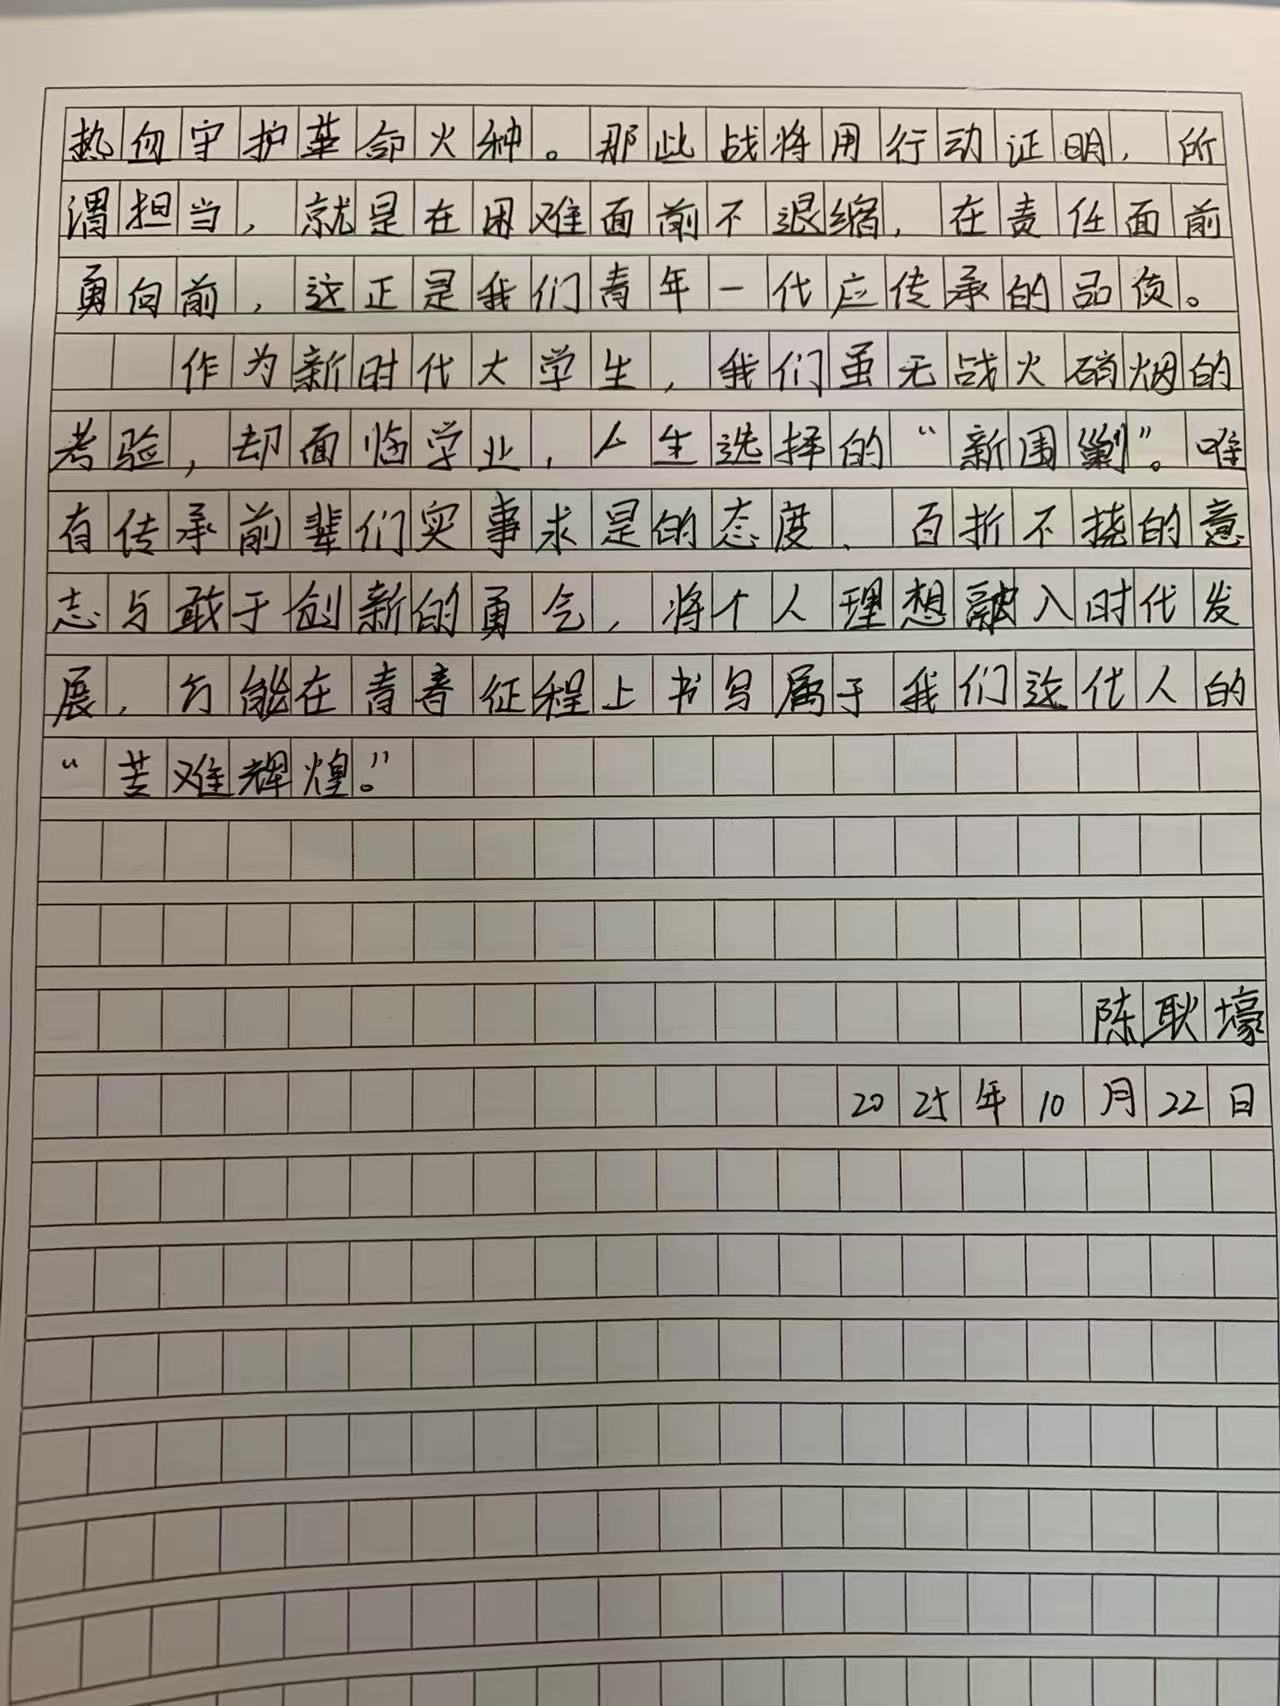 热血守护革命火种。那此战将用行动证明，所
谓担当，就是在困难面前不退缩，在责任面前
勇向前，这正是我们青年一代应传承的品质。
作为新时代大学生，我们虽无战火硝烟的
考验，却面临学业，人生选择的“新围剿”。唯
有传承前辈们实事求是的态度、百折不挠的意
志与敢于创新的勇气，将个人理想融入时代发
展，方能在青春征程上书写属于我们这代人的
“苦难辉煌。”
陈耿壕
2025年10月22日